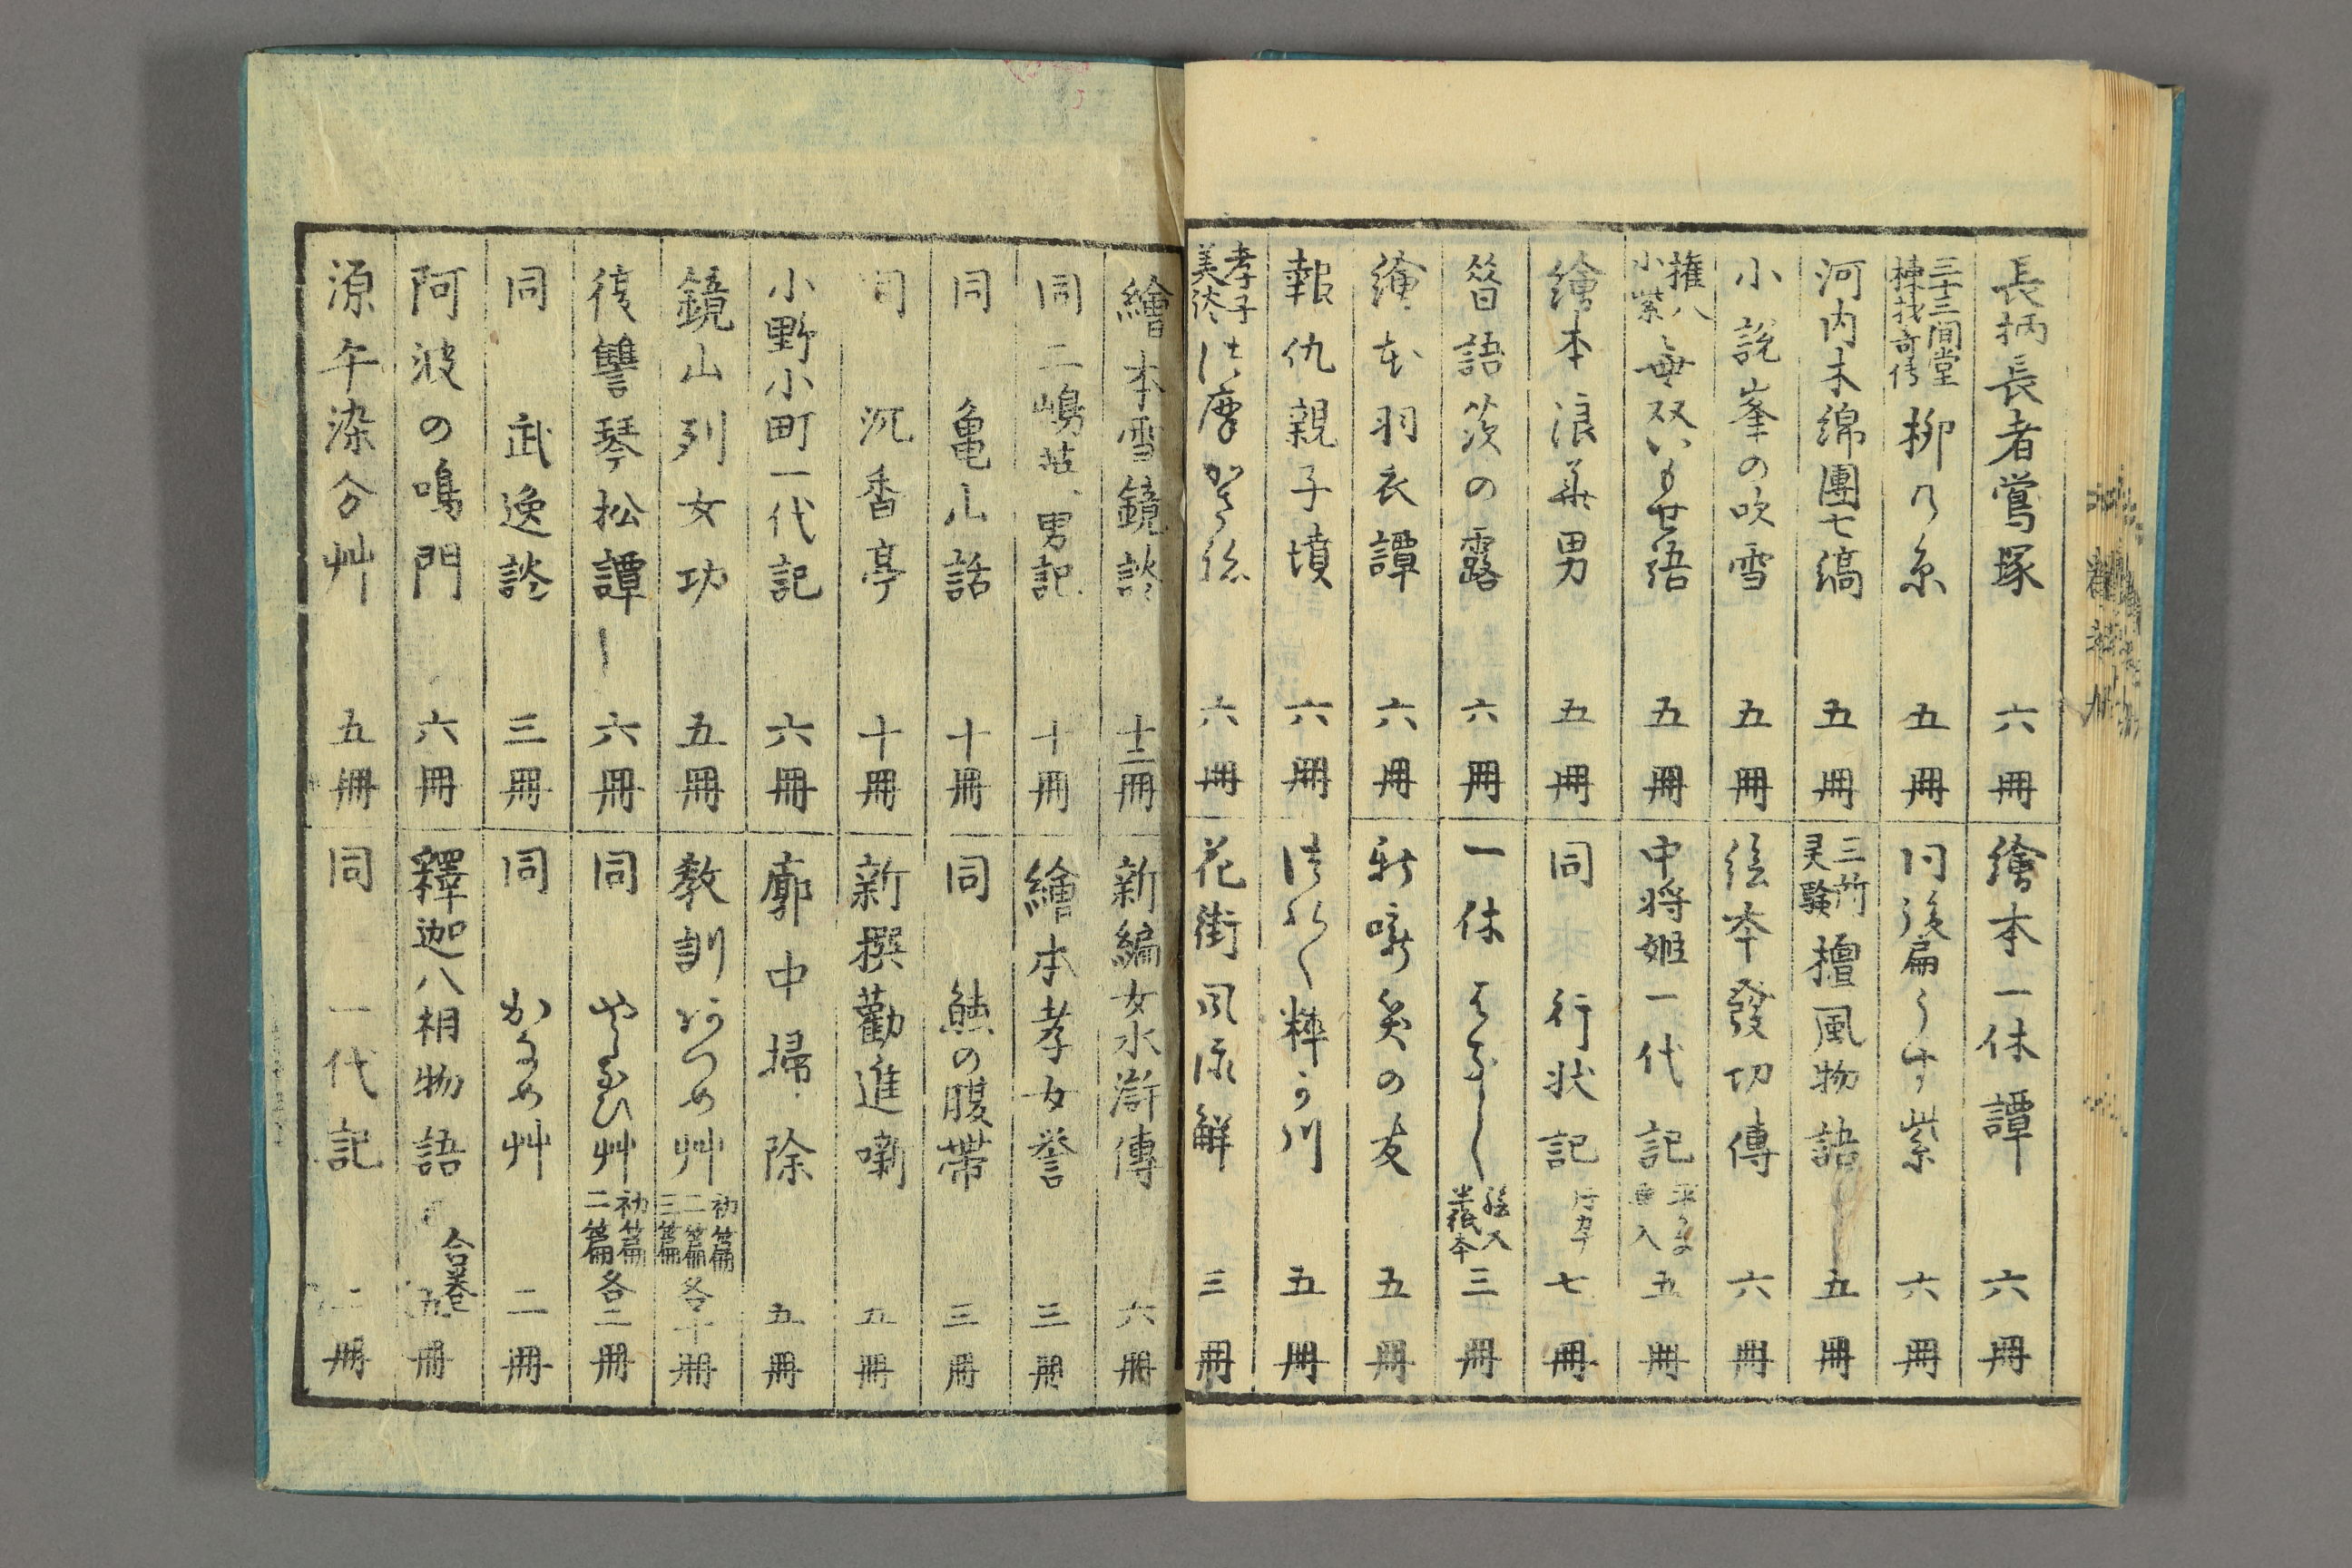 長柄長者鶯塚 六冊
三十三間堂棟材奇傳 柳乃糸 五冊
河内木綿團七縞 五冊
小説峯の吹雪 五冊
権八小紫 無双いもせ語 五冊
繪本浪華男 五冊
昔語茨の露 六冊
絵本羽衣譚 六冊
報仇親子墳 六冊
孝子美談 はまがる 六冊
繪本一休譚 六冊
同後扁うす紫 六冊
三所灵験 檀風物語 五冊
絵本發功傳 六冊
中将姫一代記 五冊
同 行状記 七冊
一休はなし 絵入半紙本 三冊
新噺笑の友 五冊
つれ〳〵粋か川 五冊
花街風流解 三冊
繪本雪鏡談 十二冊
同二嶋英男記 十冊
同 亀山話 十冊
同 沉香亭 十冊
小野小町一代記 六冊
鏡山列女功 五冊
復讐琴松譚 六冊
同 武逸談 三冊
阿波の鳴門 六冊
源午染分艸 五冊
新編女水滸傳 六冊
繪本孝女誉 三冊
同 鯱の腹帯 三冊
新撰勸進噺 五冊
廓中掃除 五冊
教訓あつめ艸 初篇二篇三篇 各十冊
同 やしなひ艸 初篇二篇 各二冊
同 かなめ艸 二冊
釋迦八相物語 合巻 五冊
同 一代記 二冊